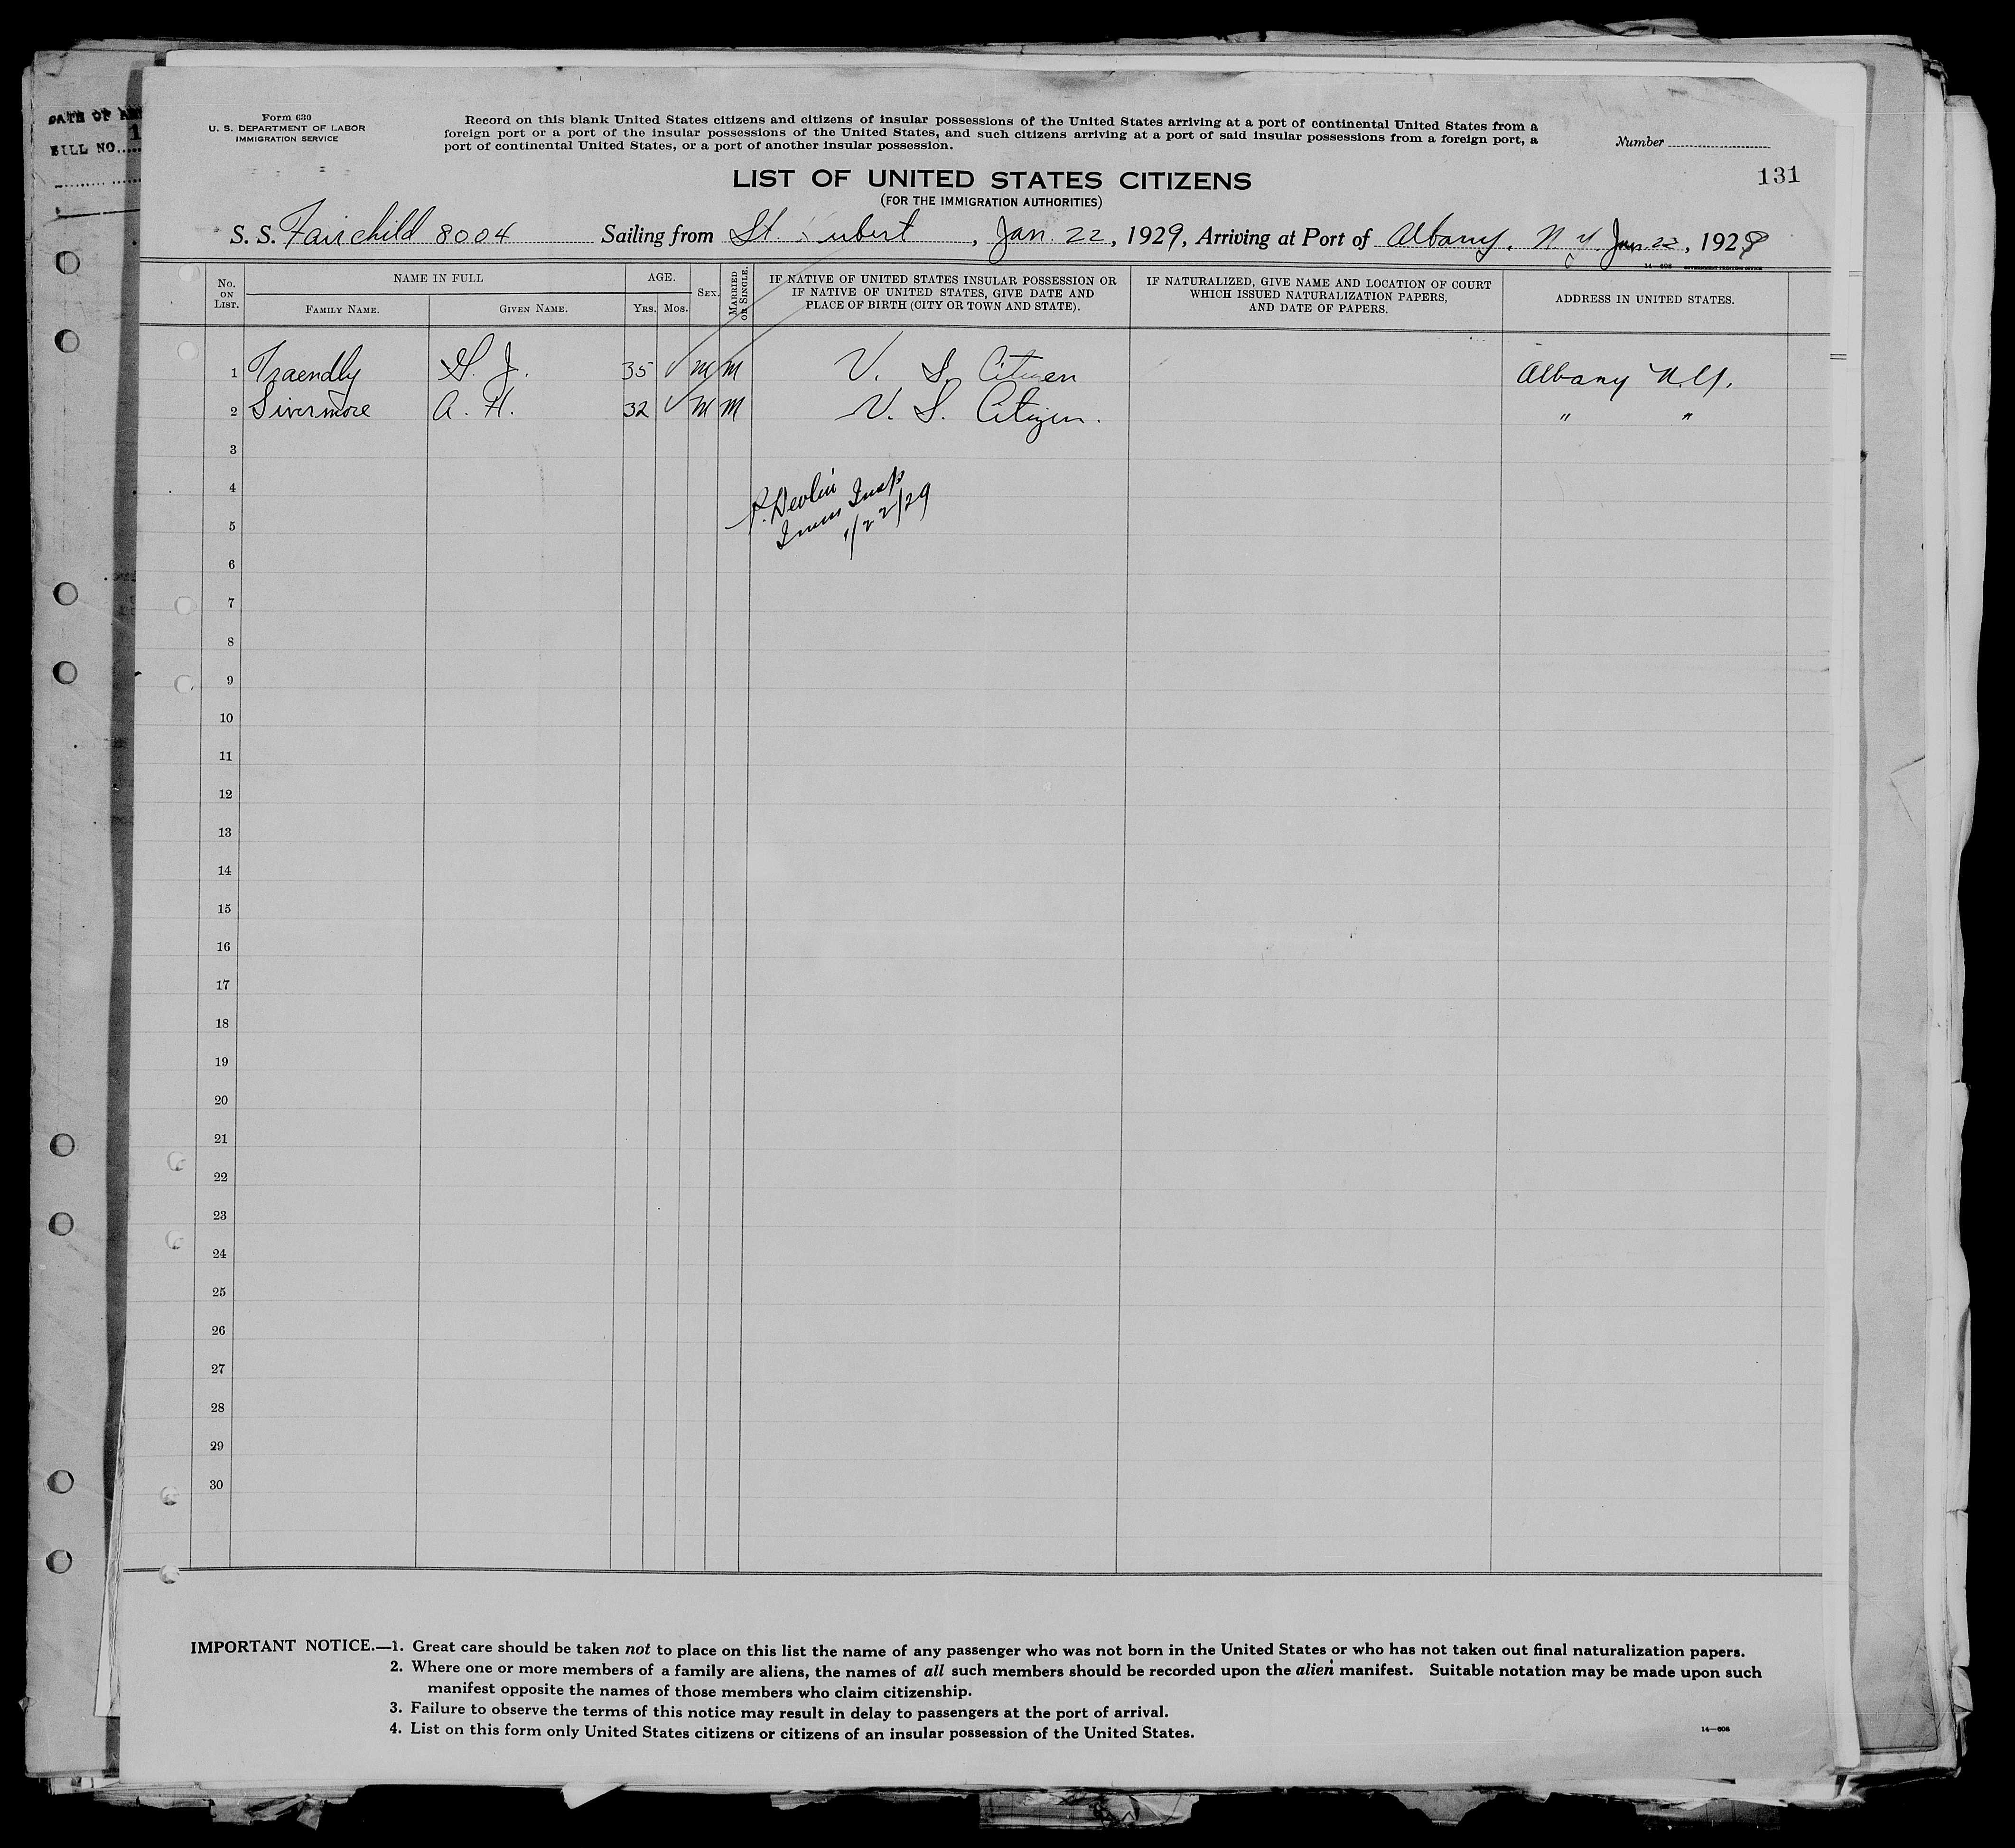 DATE OF
BILL NO.....
Form 630
U. S. DEPARTMENT OF LABOR
IMMIGRATION SERVICE
Record on this blank United States citizens and citizens of insular possessions of the United States arriving at a port of continental United States from a
foreign port or a port of the insular possessions of the United States, and such citizens arriving at a port of said insular possessions from a foreign port, a
port of continental United States, or a port of another insular possession.
Number
131
LIST OF UNITED STATES CITIZENS
(FOR THE IMMIGRATION AUTHORITIES)
S. S. Fairchild 8004 Sailing from St. Hubert, Jan. 22, 1929, Arriving at Port of Albany, N. Y. Jan. 22, 1929
14—608 GOVERNMENT PRINTING OFFICE
No. ON LIST. NAME IN FULL AGE. SEX. MARRIED OR SINGLE. IF NATIVE OF UNITED STATES INSULAR POSSESSION OR IF NATIVE OF UNITED STATES, GIVE DATE AND PLACE OF BIRTH (CITY OR TOWN AND STATE). IF NATURALIZED, GIVE NAME AND LOCATION OF COURT WHICH ISSUED NATURALIZATION PAPERS, AND DATE OF PAPERS. ADDRESS IN UNITED STATES.
FAMILY NAME. GIVEN NAME. YRS. MOS.
1 Traendly G. J. 35 ✓ M M U. S. Citizen Albany N.Y.
2 Livermore A. H. 32 ✓ M M U. S. Citizen. " "
3
4
5
P. Devlin
Imm Insp
1/22/29
6
7
8
9
10
11
12
13
14
15
16
17
18
19
20
21
22
23
24
25
26
27
28
29
30
IMPORTANT NOTICE.—1. Great care should be taken not to place on this list the name of any passenger who was not born in the United States or who has not taken out final naturalization papers.
2. Where one or more members of a family are aliens, the names of all such members should be recorded upon the alien manifest. Suitable notation may be made upon such
manifest opposite the names of those members who claim citizenship.
3. Failure to observe the terms of this notice may result in delay to passengers at the port of arrival.
4. List on this form only United States citizens or citizens of an insular possession of the United States.
14—608